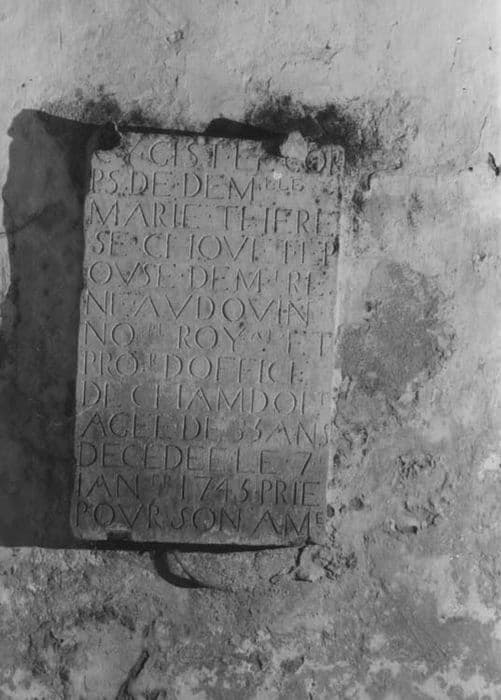 CY GIST LE COR
PS DE DEM ELLE
MARIE THERE
SE CHOUET EP
OVSE DE M R RE
NE AVDOVIN
NO RE ROY AL ET
PRO R D'OFFICE
DE CHAMDOL
AGEE DE 33 ANS
DECEDEE LE 7
IAN ER 1745 PRIE
POVR SON AM E